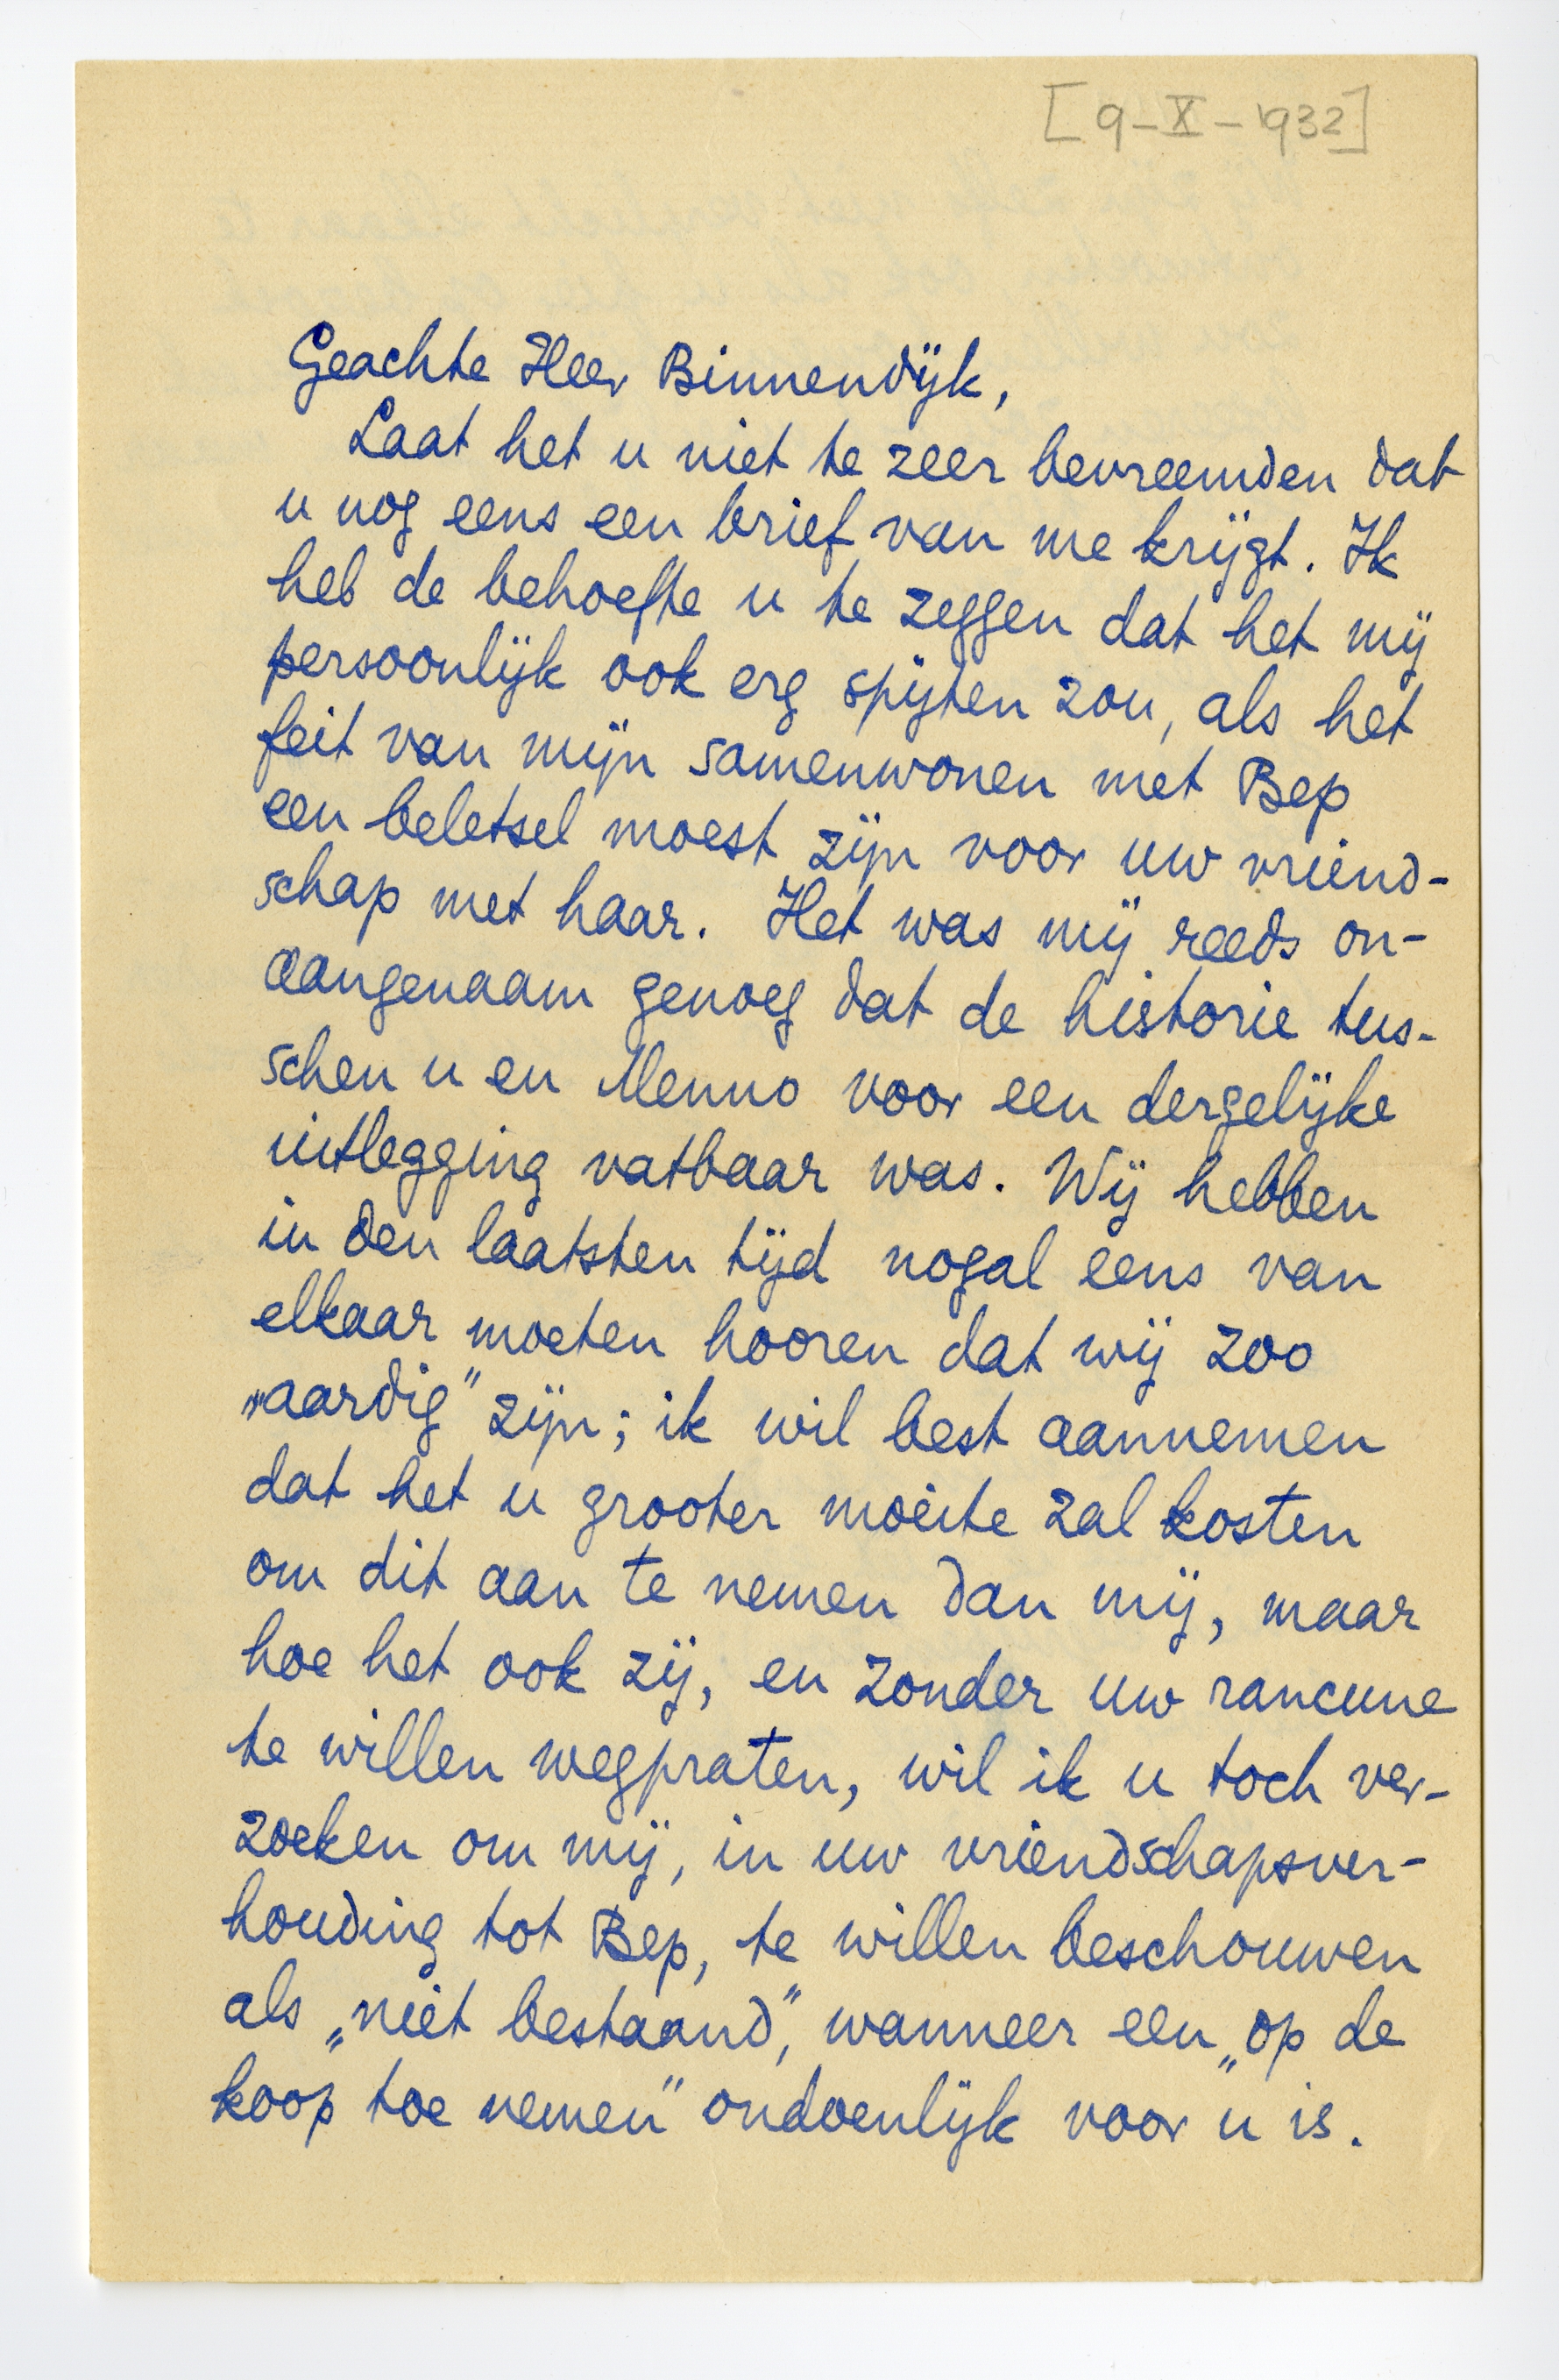 [9-X-1932]
Geachte Heer Binnendijk,
Laat het u niet te zeer bevreemden dat
u nog eens een brief van me krijgt. Ik
heb de behoefte u te zeggen dat het mij
persoonlijk ook erg spijten zou, als het
feit van mijn samenwonen met Bep
een beletsel moest zijn voor uw vriend-
schap met haar. Het was mij reeds on-
aangenaam genoeg dat de historie tus-
schen u en Menno voor een dergelijke
uitlegging vatbaar was. Wij hebben
in den laatsten tijd nogal eens van
elkaar moeten hooren dat wij zoo
„aardig” zijn; ik wil best aannemen
dat het u grooter moeite zal kosten
om dit aan te nemen dan mij, maar
hoe het ook zij, en zonder uw rancune
te willen wegpraten, wil ik u toch ver-
zoeken om mij, in uw vriendschapsver-
houding tot Bep, te willen beschouwen
als „niet bestaand”, wanneer een „op de
koop toe nemen” ondoenlijk voor u is.